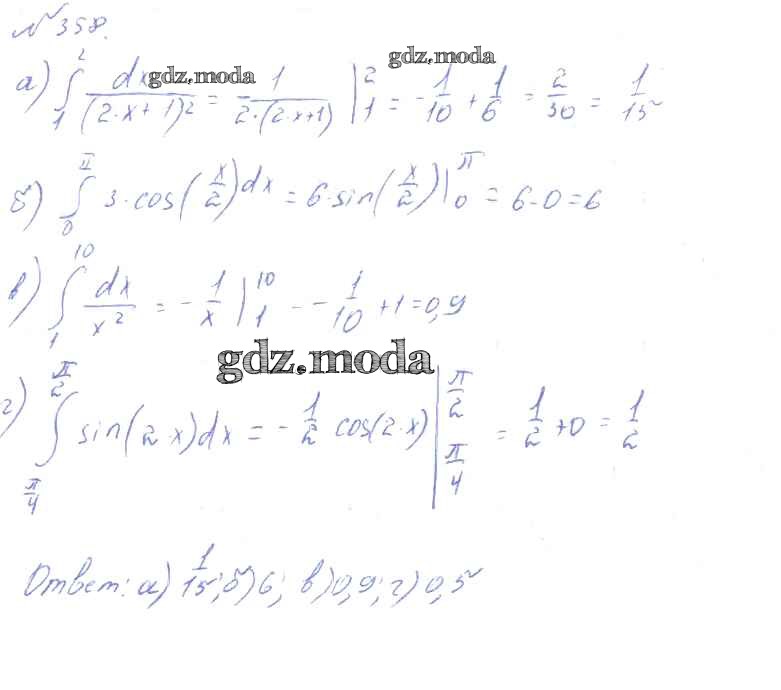 № 358.
gdz.moda
а) ∫₁² dx/(2·x+1)² = -1/(2·(2·x+1)) |₁² = -1/10 + 1/6 = 2/30 = 1/15
gdz.moda
б) ∫₀^π 3·cos(x/2)dx = 6·sin(x/2)|₀^π = 6-0=6
в) ∫₁¹⁰ dx/x² = -1/x |₁¹⁰ - -1/10 +1=0,9
gdz.moda
г) ∫_{π/4}^{π/2} sin(2·x)dx = -1/2 cos(2·x) |_{π/4}^{π/2} = 1/2 +0 = 1/2
Ответ: а) 1/15; б) 6; в) 0,9; г) 0,5